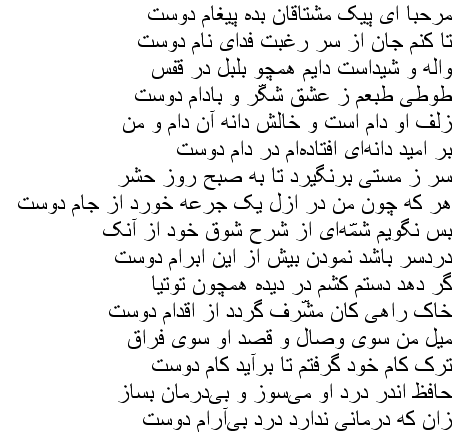 مرحبا ای پیک مشتاقان بده پیغام دوست
تا کنم جان از سر رغبت فدای نام دوست
واله و شیداست دایم همچو بلبل در قفس
طوطی طبعم ز عشق شکّر و بادام دوست
زلف او دام است و خالش دانه آن دام و من
بر امید دانه‌ای افتاده‌ام در دام دوست
سر ز مستی برنگیرد تا به صبح روز حشر
هر که چون من در ازل یک جرعه خورد از جام دوست
بس نگویم شمّه‌ای از شرح شوق خود از آنک
دردسر باشد نمودن بیش از این ابرام دوست
گر دهد دستم کشم در دیده همچون توتیا
خاک راهی کان مشرّف گردد از اقدام دوست
میل من سوی وصال و قصد او سوی فراق
ترک کام خود گرفتم تا برآید کام دوست
حافظ اندر درد او می‌سوز و بی‌درمان بساز
زان که درمانی ندارد درد بی‌آرام دوست